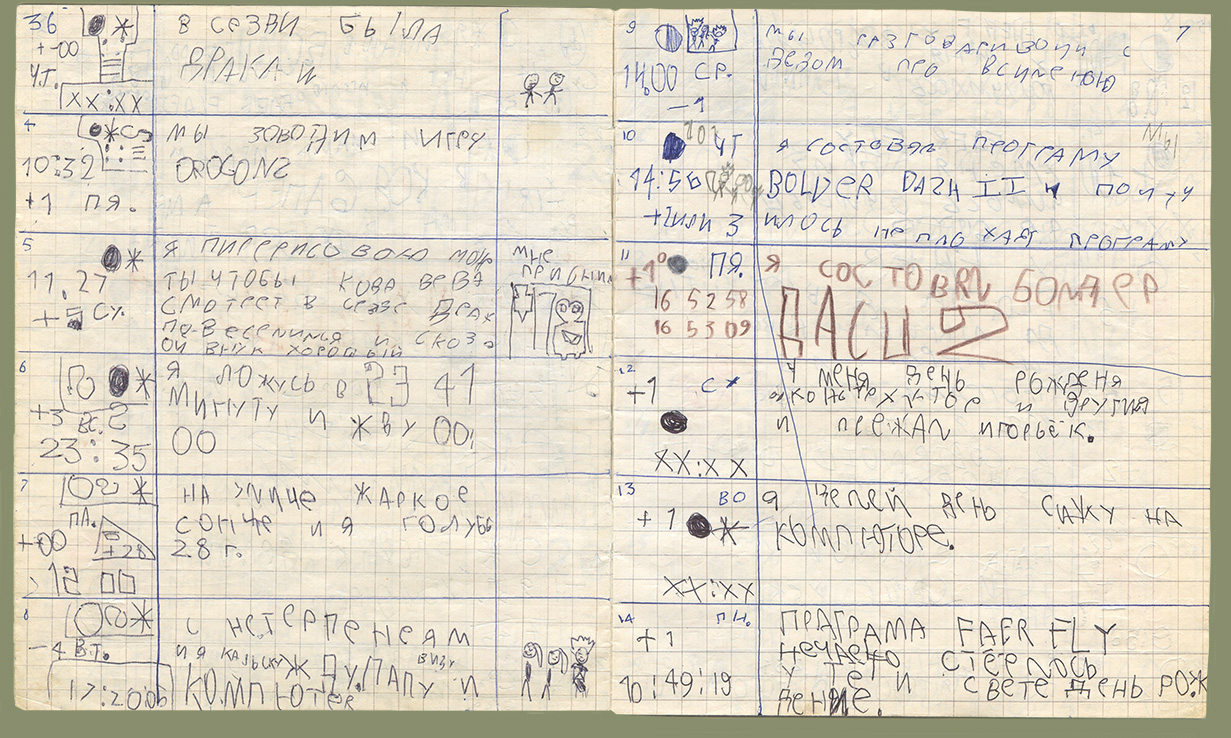 36
+-00
Ч.Т.
XX:XX
В СЕЗВИ БЫЛА
ДРАКА И
4
10:32
+1 ПЯ.
МЫ ЗОВОДИМ ИГРУ
DROGONS
5
11,27
СУ.
Я ПИРЕРИСОВОЮ
ТЫ ЧТОБЫ КОВА ВЕВА
СМОТРЕТ В
ПОВЕСЕЛИМСЯ И СКОЗО
ОЙ ВНУК ХОРОШЫЙ
МНЕ
ПРИСНИЛ
6
+3 ВС.
23:35
Я ЛОЖУСЬ В 23 41
МИНУТУ И ЖВУ 00
00
7
ПА.
+00
+28
12 00
НА УЛИЦЕ ЖАРКОЕ
СОНЦЕ И Я ГОЛУБЬ
28 г.
8
-4 В.Т.
17:2006
С НЕТЕРПЕНЕЯМ
ЖДУ ПАПУ И
ВИЗУ
КОМПЮТЕR
9
14,00 СР.
-1
7
МЫ РАЗГОВАРИВОЛИ С
ВЕЗОМ ПРО ВСИЛЕНЮЮ
10
ЧТ
14:56
+2 ИЛИ 3
МЫ
Я СОСТОВЯЛ ПРОГРАМУ
BOLDER DAZH II И ПОЛУЧ
ИЛОСЬ НЕПЛОХАЯ ПРОГРАМУ
11
+1° ПЯ.
16 52 58
16 53 09
Я СОСТОВЯЛ БОЛДЕР
ДАСЦ 2
12
+1
XX:XX
У МЕНЯ ДЕНЬ РОЖДЕНЯ
И ДРУГИЯ
И ПРЕЖАЛ ИГОРЬЁК.
13
ВО
+1
XX:XX
Я ЦЕЛЕЙ ДЕНЬ СИЖУ НА
КОМПЮТОРЕ.
14
ПН.
+1
10:49:19
ПРАГРАМА FAER FLY
НЕЧАЕНО СТЁРЛОСЬ
У ТЕТИ СВЕТЕ ДЕНЬ РОЖ
ДЕНИЕ.